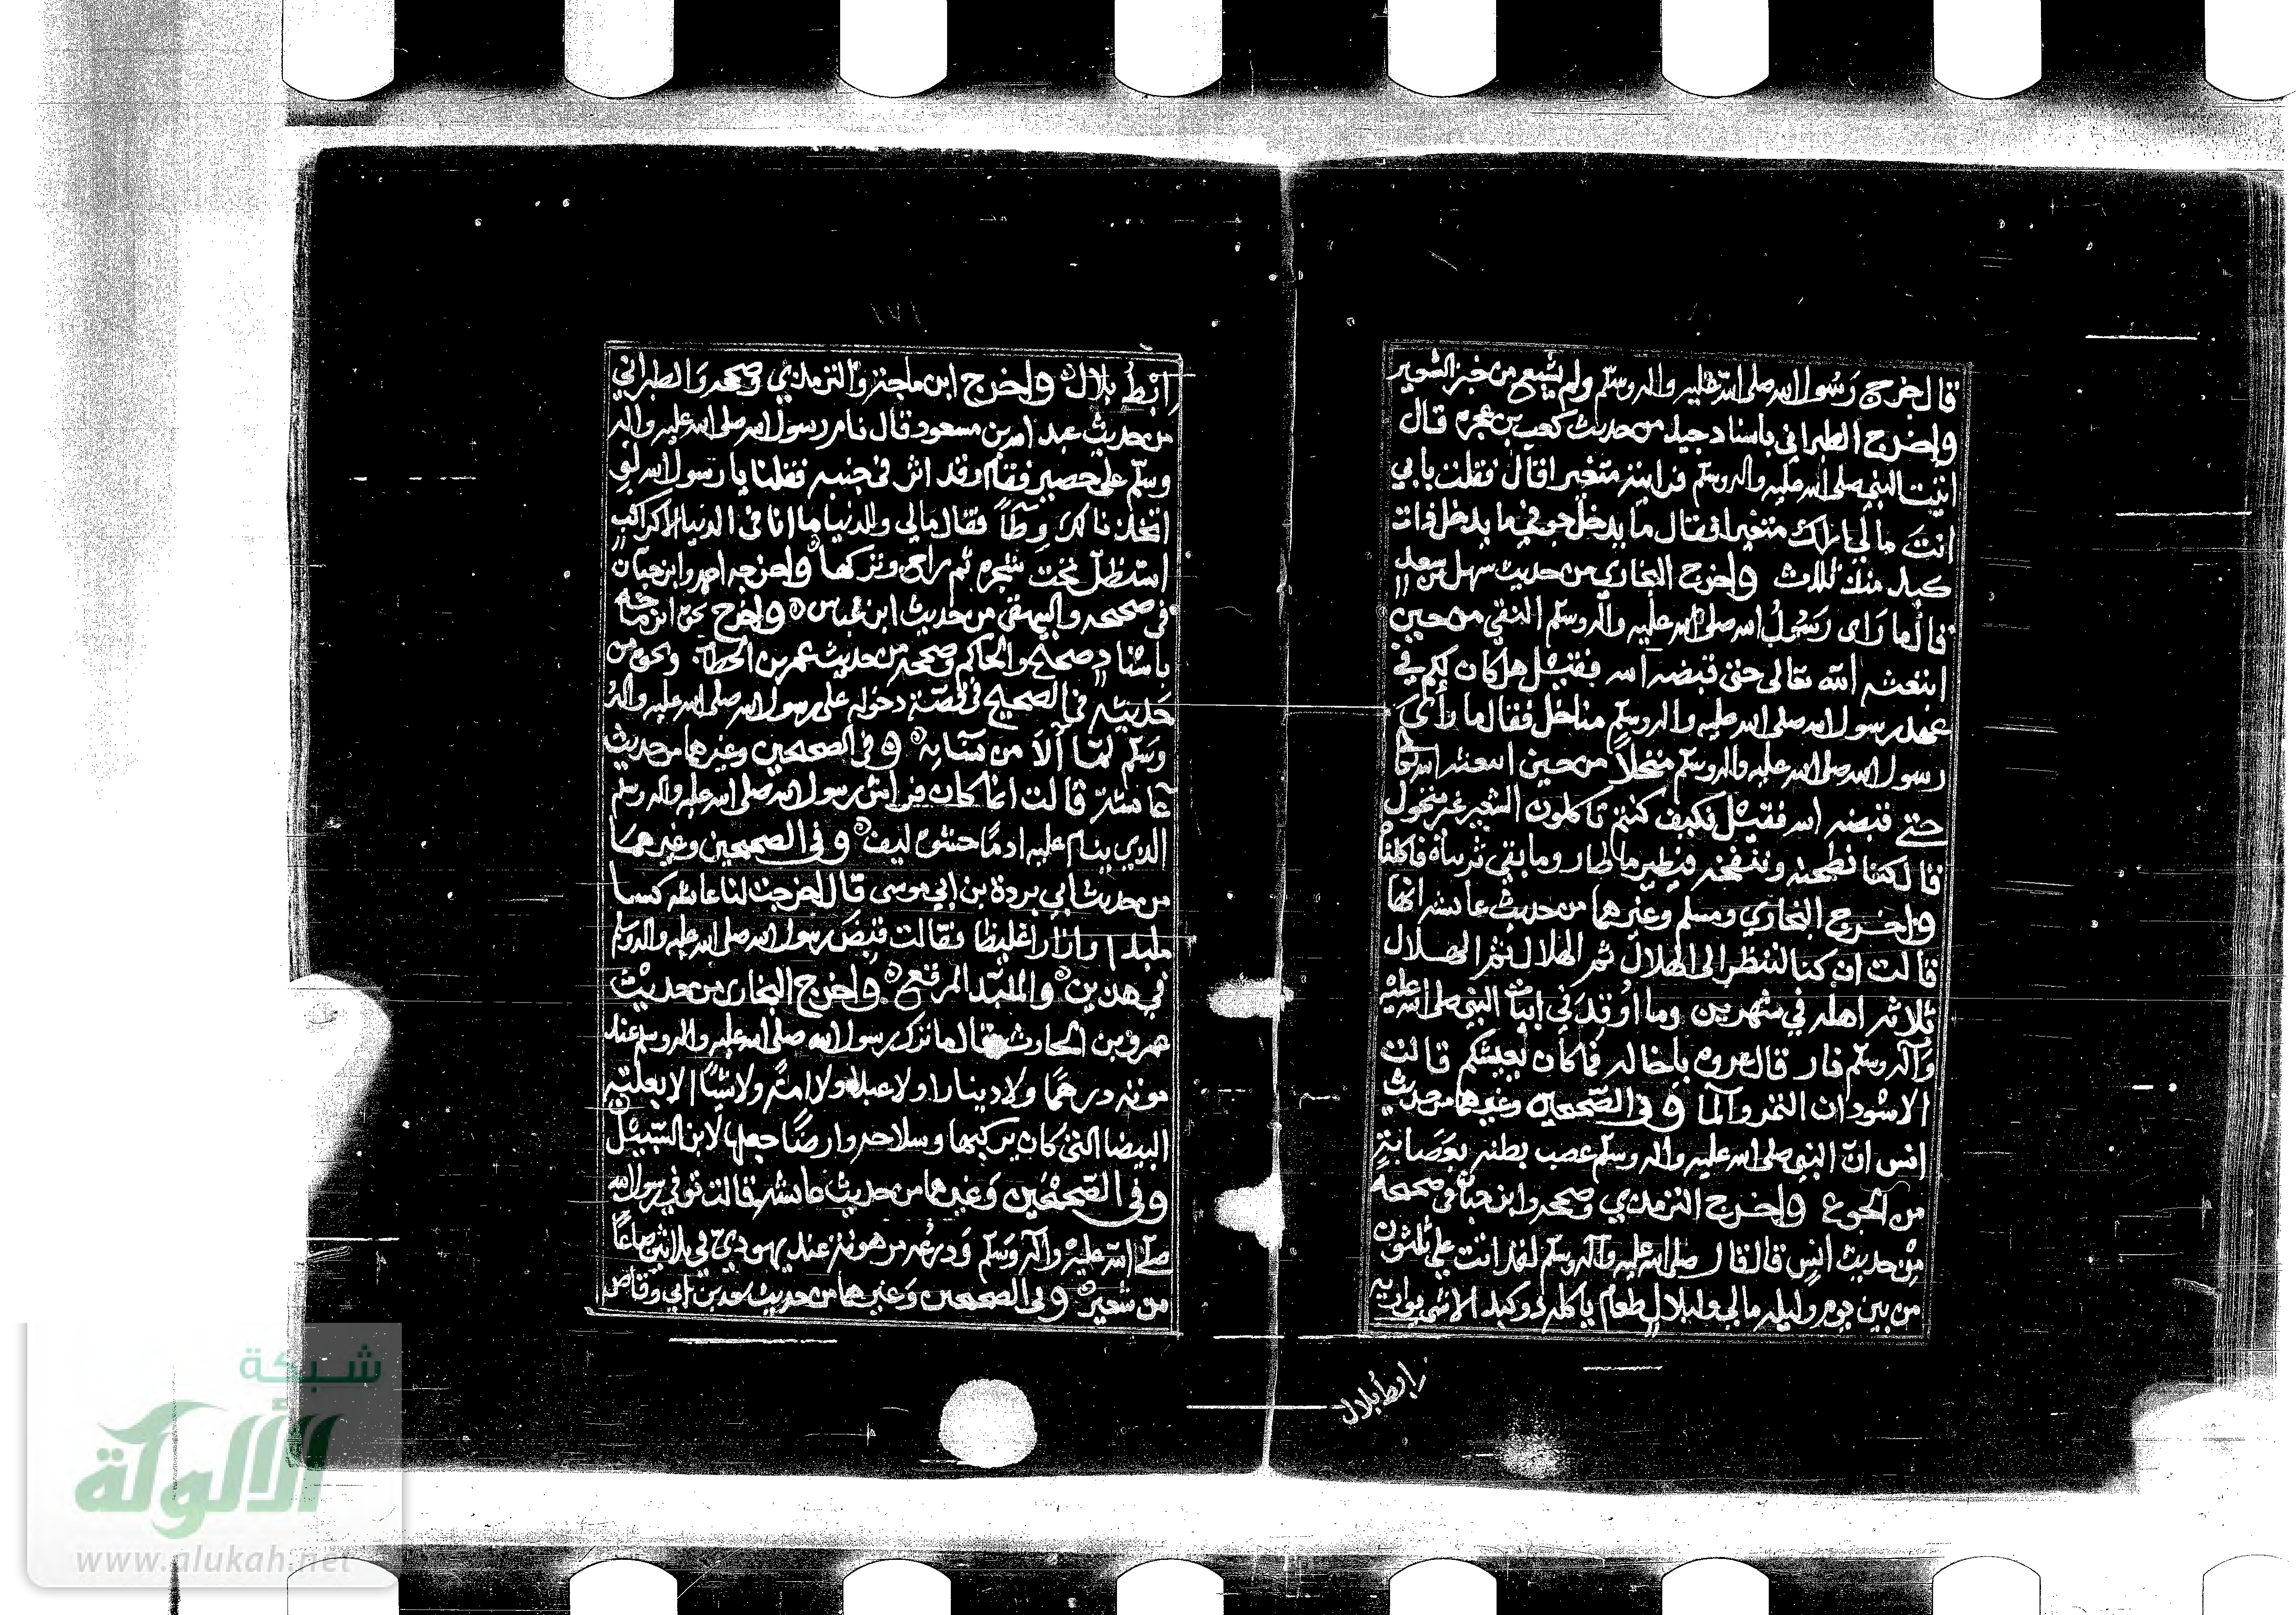 قال خرج رسول الله صلى الله عليه واله وسلم ولم يشبع من خبز الشعير
واخرج الطبراني باسناد جيد من حديث كعب بن عجره قال
اتيت النبي صلى الله عليه واله وسلم فرايته متغيرا قال فقلت بابي
انت مالي اراك متغيرا فقال ما يدخل جوفي ما يدخل ذات
كبد منذ ثلاث واخرج البخاري من حديث سهل بن سعد
قال ما راى رسول الله صلى الله عليه واله وسلم النقي من حين
ابتعثه الله تعالى حتى قبضه الله فقيل هل كان لكم في
عهد رسول الله صلى الله عليه واله وسلم مناخل فقال ما رأى
رسول الله صلى الله عليه واله وسلم منخلاً من حين ابتعثه الله
حتى قبضه الله فقيل فكيف كنتم تاكلون الشعير غير منخول
قال كنا نطحنه وننفخه فيطير ما طار وما بقي ثريناه فاكلناه
واخرج البخاري ومسلم وغيرهما من حديث عائشه انها
قالت ان كنا لننظر الى الهلال ثم الهلال ثم الهلال
ثلاثه اهله في شهرين وما اوقد في ابيات النبي صلى الله عليه
واله وسلم نار قال عروه يا خاله فما كان يعيشكم قالت
الاسودان التمر والما وفي الصحيحين وغيرهما من حديث
انس ان النبي صلى الله عليه واله وسلم عصب بطنه بعصابة
من الجوع واخرج الترمذي وصححه وابن حبان في صحيحه
من حديث انس قال قال صلى الله عليه واله وسلم لقد اتت علي ثلثون
من بين يوم وليله مالي ولبلال طعام ياكله ذو كبد الا شي يواريه
ابط بلال
ابْطُ بلال واخرج ابن ماجة والترمذي وصححه والطبراني
من حديث عبد الله بن مسعود قال نام رسول الله صلى الله عليه واله
وسلم على حصير فقام وقد اثر في جنبه فقلنا يا رسول الله لو
اتخذنا لك وطاً فقال مالي وللدنيا ما انا في الدنيا الا كراكب
استظل تحت شجره ثم راح وتركها واخرجه احمد وابن حبان
في صحيحه والبيهقي من حديث ابن عباس واخرج نحوه ابن ماجه
باسناد صحيح والحاكم وصححه من حديث عمر بن الخطاب ونحوه من
حديثه في الصحيح في قصة دخوله على رسول الله صلى الله عليه واله
وسلم لما ألا من نسائه وفي الصحيحين وغيرهما من حديث
عائشة قالت انما كان فراش رسول الله صلى الله عليه واله وسلم
الذي ينام عليه ادمًا حشوه ليف وفي الصحيحين وغيرهما
من حديث ابي بردة بن ابي موسى قال اخرجت لنا عائشه كسا
ملبدا وازارا غليظا فقالت قبض رسول الله صلى الله عليه واله وسلم
في هذين والملبد المرقع واخرج البخاري من حديث
عمرو بن الحارث قال ما ترك رسول الله صلى الله عليه واله وسلم عند
موته درهمًا ولا دينارا ولا عبدا ولا امةً ولا شيًا الا بغلته
البيضا التي كان يركبها وسلاحه وارضًا جعلها لابن السبيل
وفي الصحيحين وغيرهما من حديث عائشه قالت توفي رسول الله
صلى الله عليه واله وسلم ودرعه مرهونة عند يهودي في ثلاثين صاعًا
من شعير وفي الصحيحين وغيرهما من حديث سعد بن ابي وقاص
شبكة
الألوكة
www.alukah.net